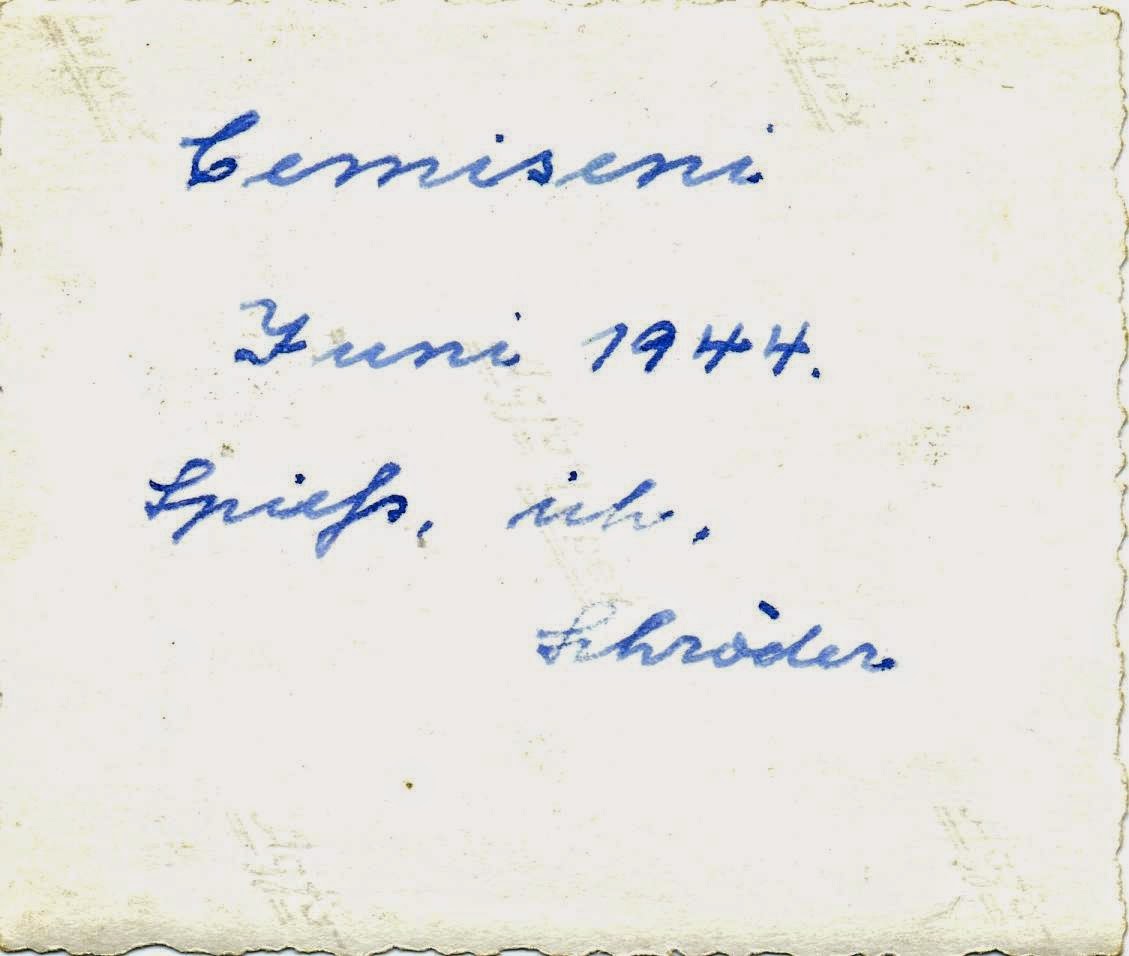 Cemiseni
Juni 1944.
Spieß, ich,
Schröder